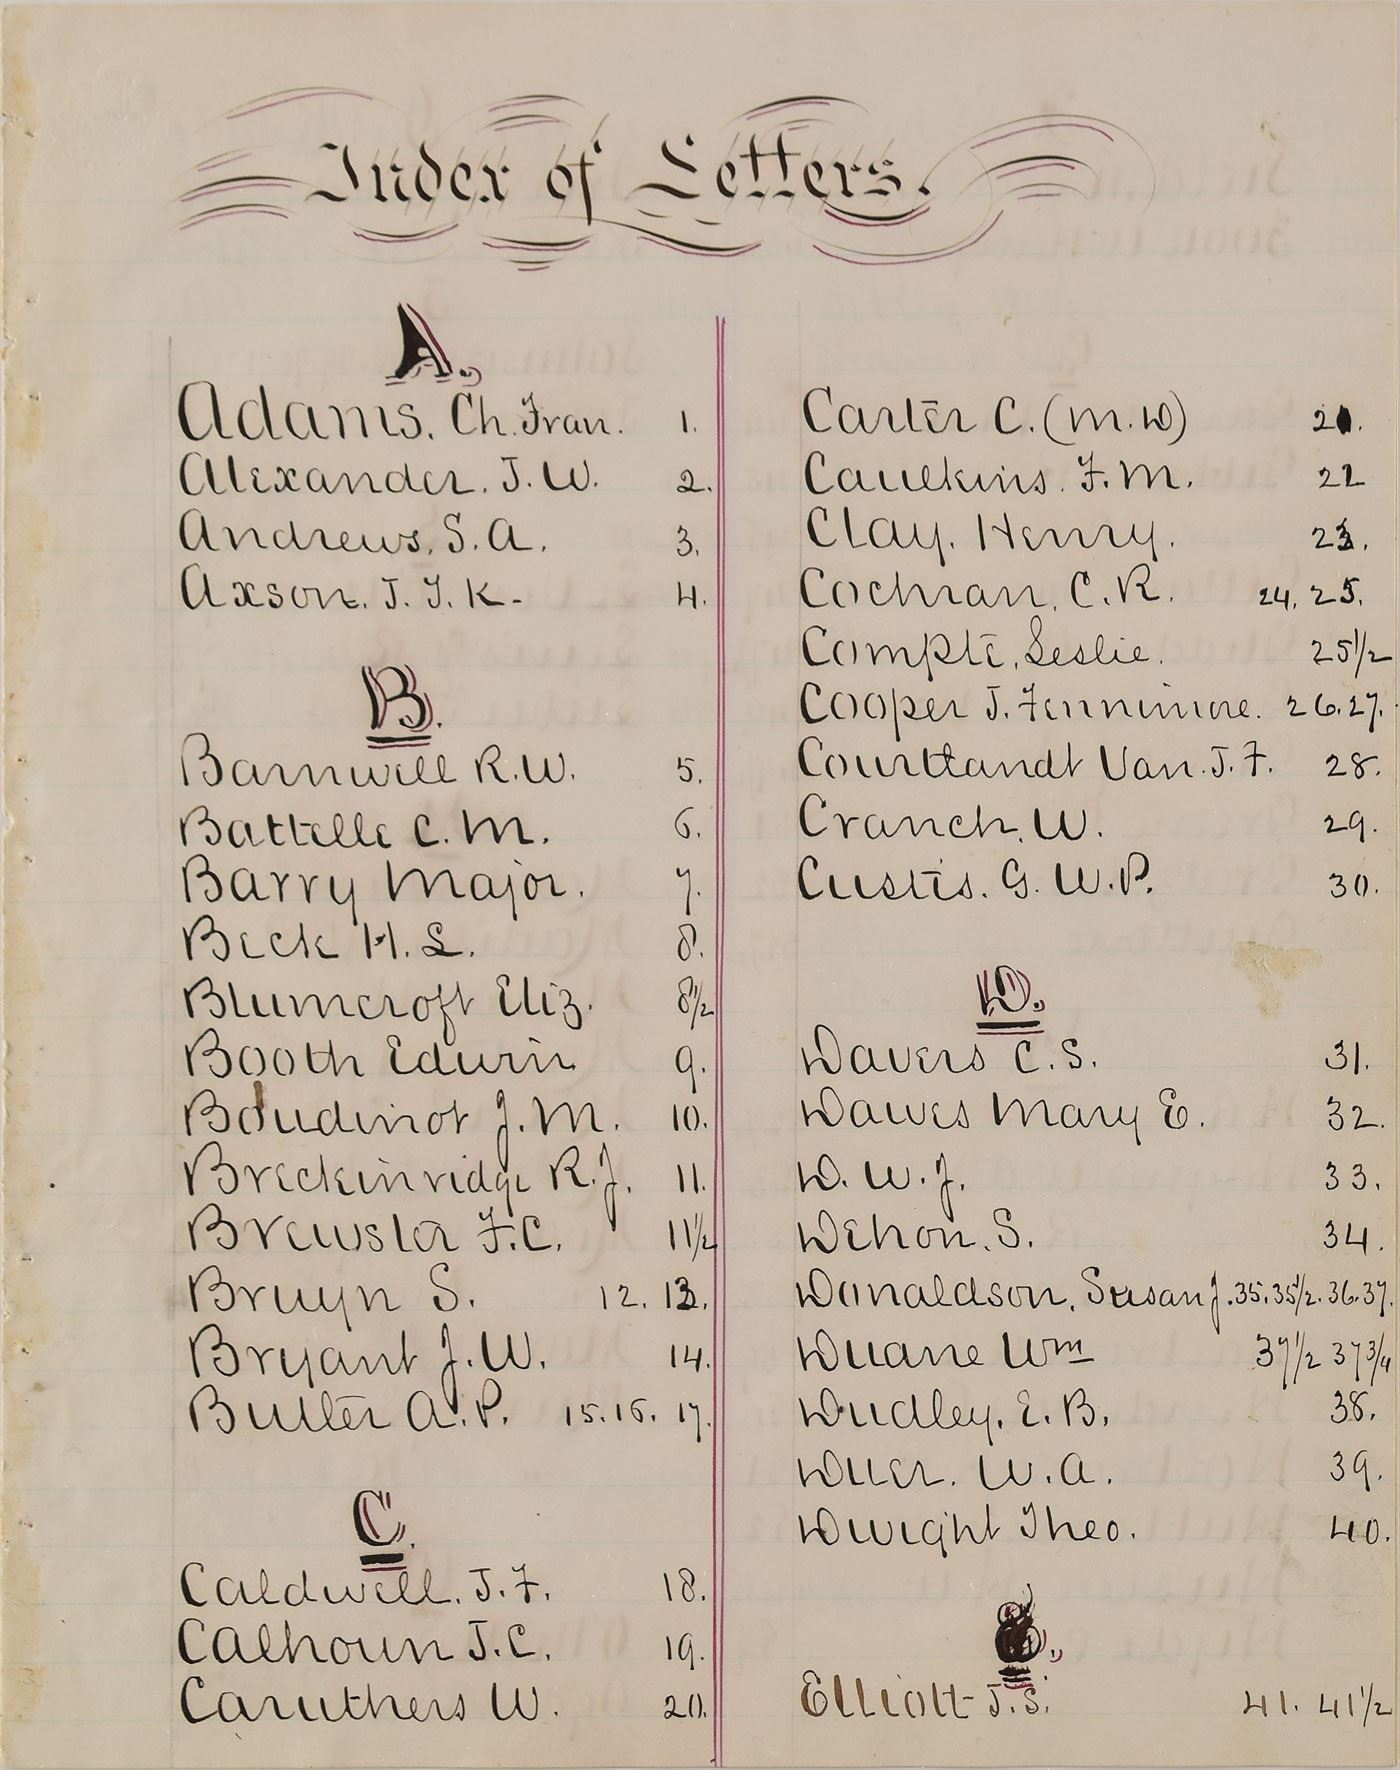 Index of Letters.
A.
Adams, Ch. Fran. 1.
Alexander. J. W. 2.
Andrews, S. A. 3.
Axson, J. T. K. 4.
B.
Barnwell R. W. 5.
Battelle C. M. 6.
Barry Major. 7.
Beck H. L. 8.
Blumcroft Eliz. 8½
Booth Edwin 9.
Boudinot J. M. 10.
Breckinridge R. J. 11.
Brewster F. C. 11½
Bruyn S. 12. 13.
Bryant J. W. 14.
Butler A. P. 15. 16. 17.
C.
Caldwell, J. F. 18.
Calhoun J. C. 19.
Caruthers W. 20.
Carter C. (M. W) 21.
Caulkins. F. M. 22
Clay. Henry. 23.
Cochran, C. R. 24. 25.
Compte, Leslie. 25½
Cooper J. Fennimore. 26. 27.
Courttandt Van. J. F. 28.
Cranch, W. 29.
Custis. G. W. P. 30.
D.
Davers C. S. 31.
Dawes Mary E. 32.
D. W. J. 33.
Dehon. S. 34.
Donaldson, Susan J. 35. 35½. 36. 37.
Duane Wm 37½ 37¾
Dudley, E. B. 38.
Duer. W. A. 39.
Dwight Theo. 40.
E.
Elliott J. S. 41. 41½